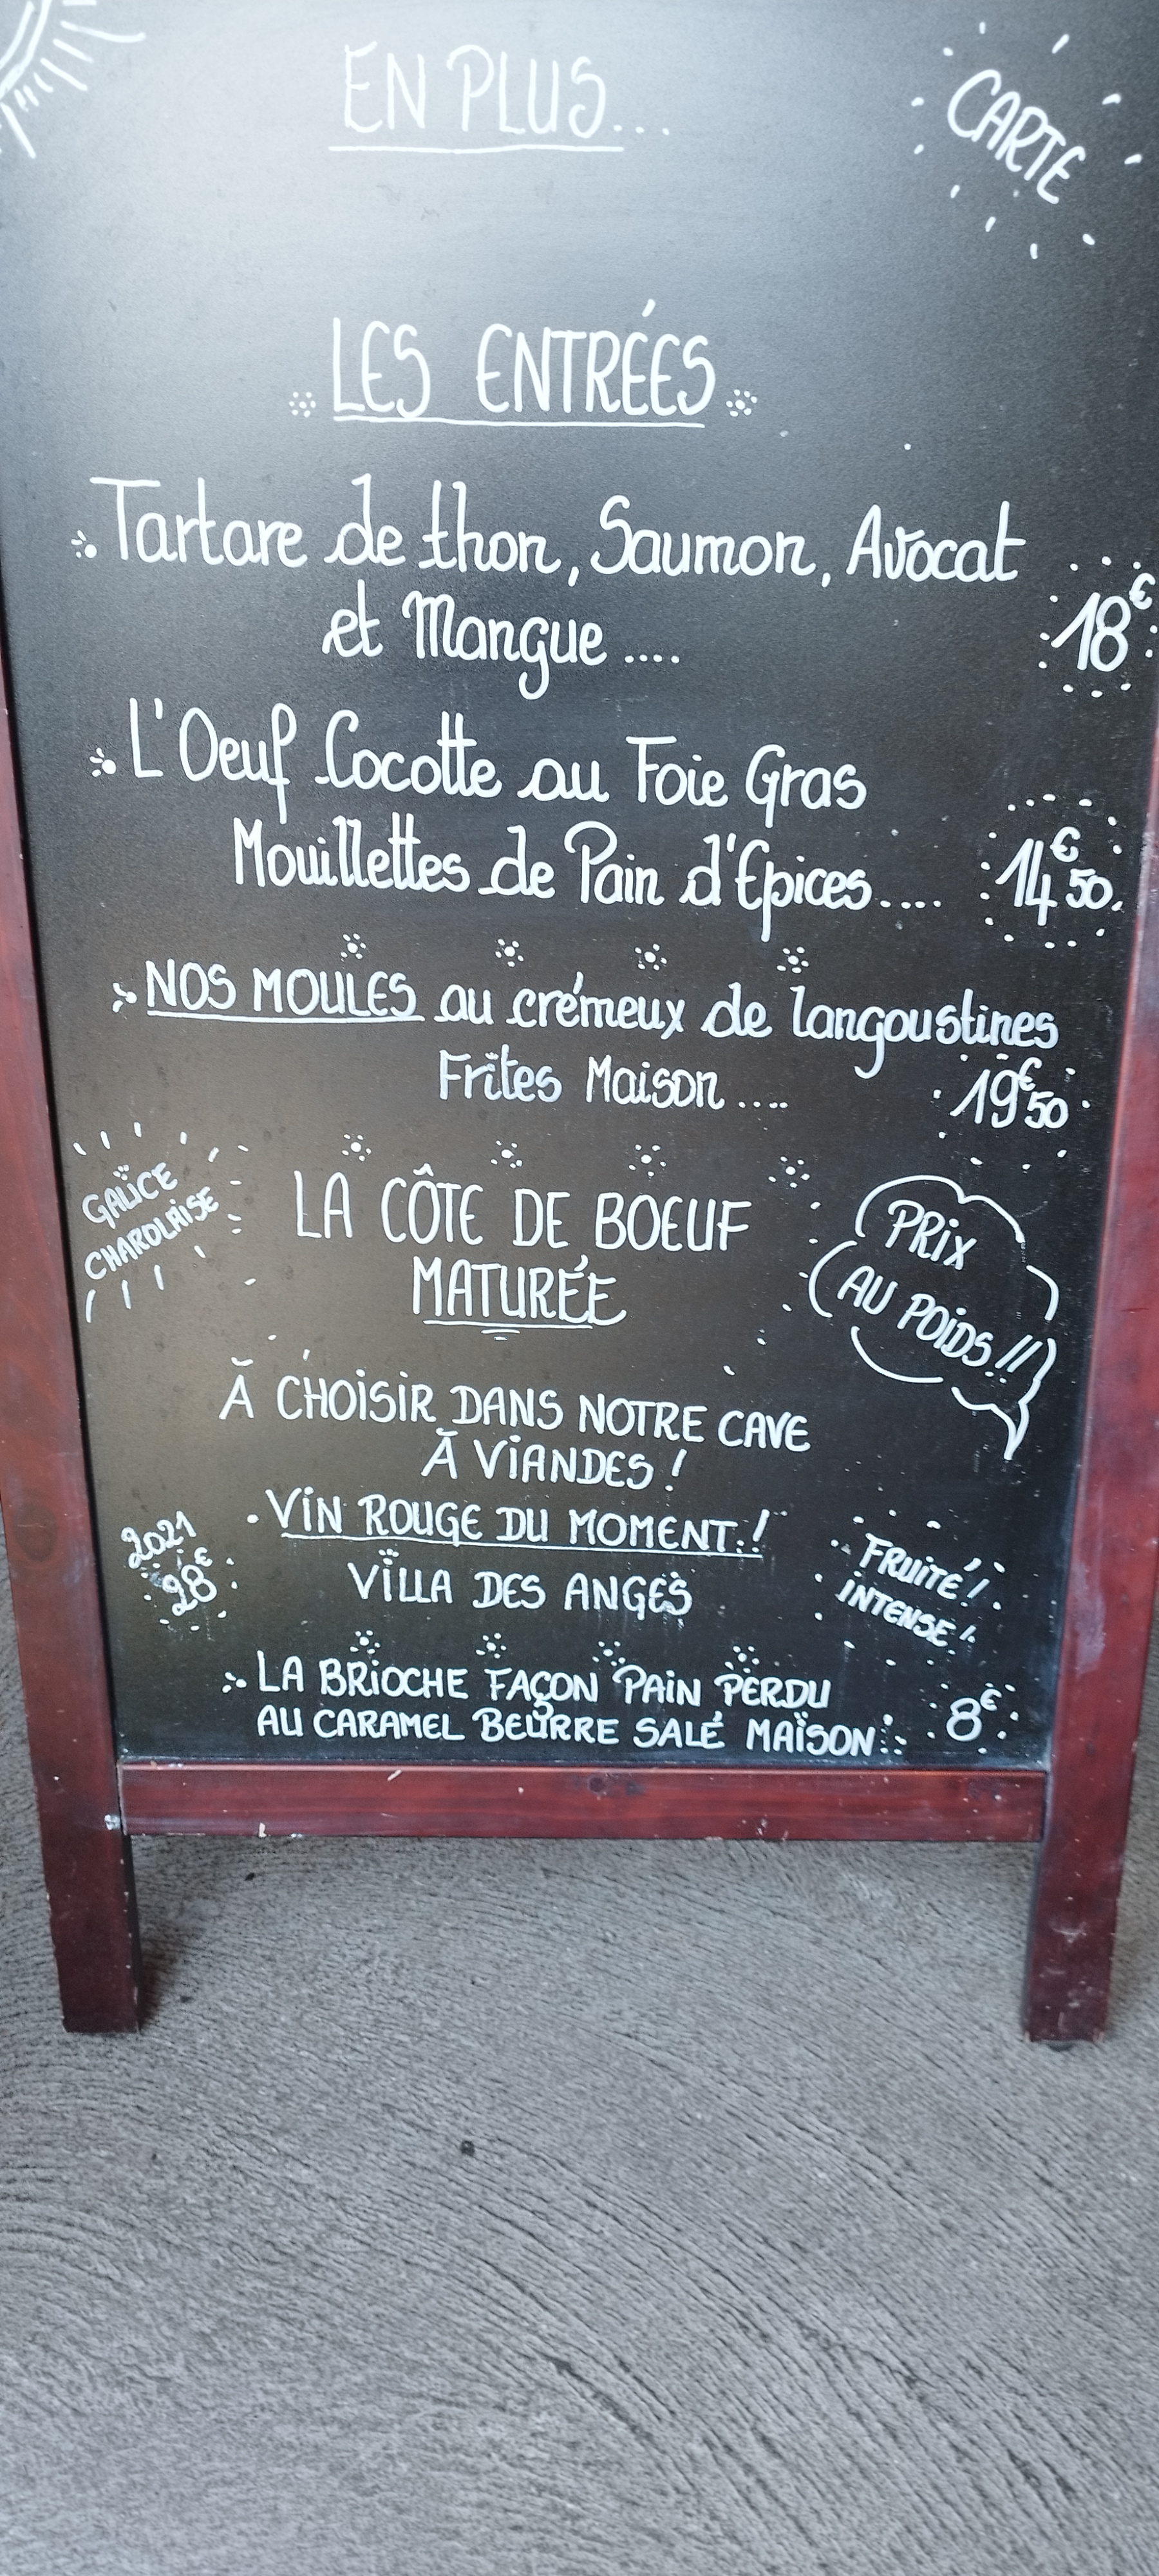 EN PLUS...
CARTE
LES ENTRÉES
Tartare de thon, Saumon, Avocat
et Mangue ....
18€
L'Oeuf Cocotte au Foie Gras
Mouillettes de Pain d'Epices....
14€50
NOS MOULES au crémeux de langoustines
Frites Maison ....
19€50
GALICE
CHAROLAISE
LA CÔTE DE BOEUF
MATURÉE
PRIX
AU POIDS!!
À CHOISIR DANS NOTRE CAVE
À VIANDES !
VIN ROUGE DU MOMENT.!
2021
28€
VILLA DES ANGES
FRUITÉ !
INTENSE !
LA BRIOCHE FAÇON PAIN PERDU
AU CARAMEL BEURRE SALÉ MAISON
8€